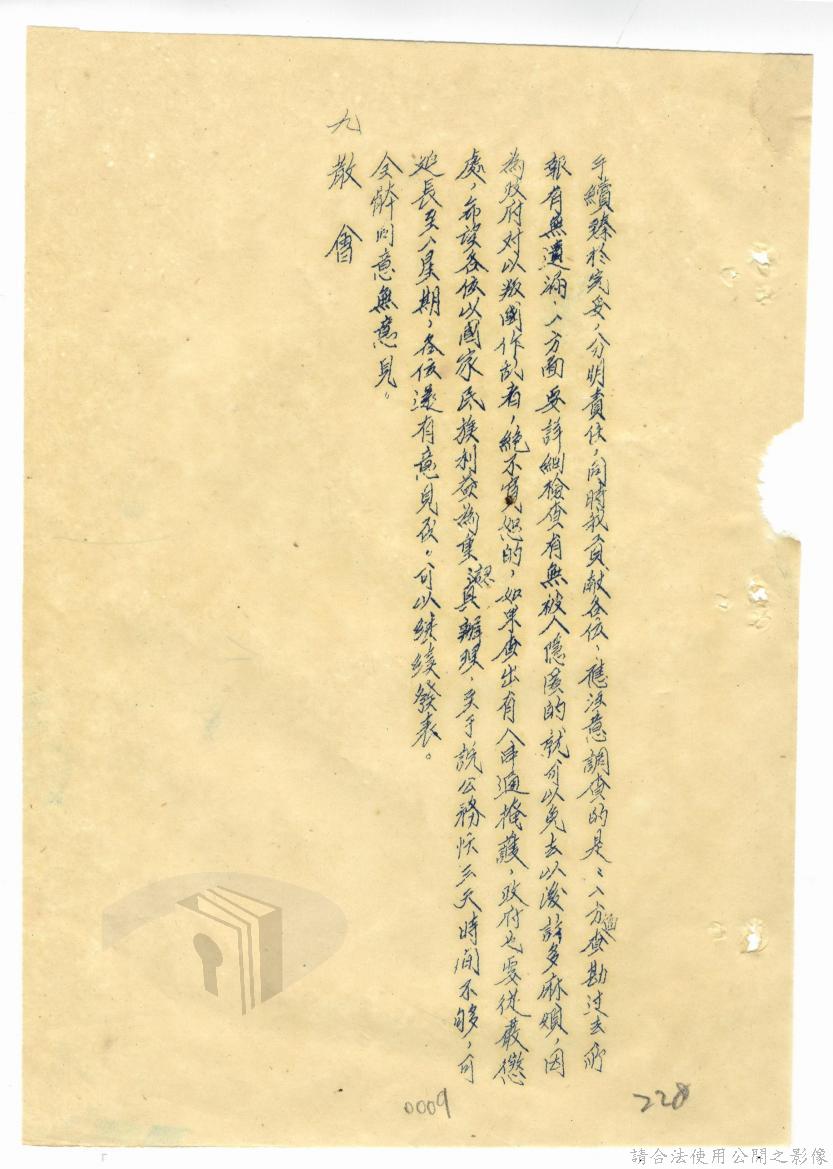 手續臻於完妥，分明責任，同時我貢献各位，應注意調查的是：一方面查勘过去所
報有無遺漏，一方面要詳細檢查有無被人隱匿的就可以免去以後許多麻煩，因
為政府对以叛國作乱者，絕不寬恕的，如果查出有人串通掩護，政府也要從嚴懲
處，希望各位以國家民族利益為重認真辦理，至于說公務忙三天時间不够，可
延長至一星期，各位還有意見否，可以继續發表。
全體同意無意見。
九 散會
0009
228
請合法使用公開之影像